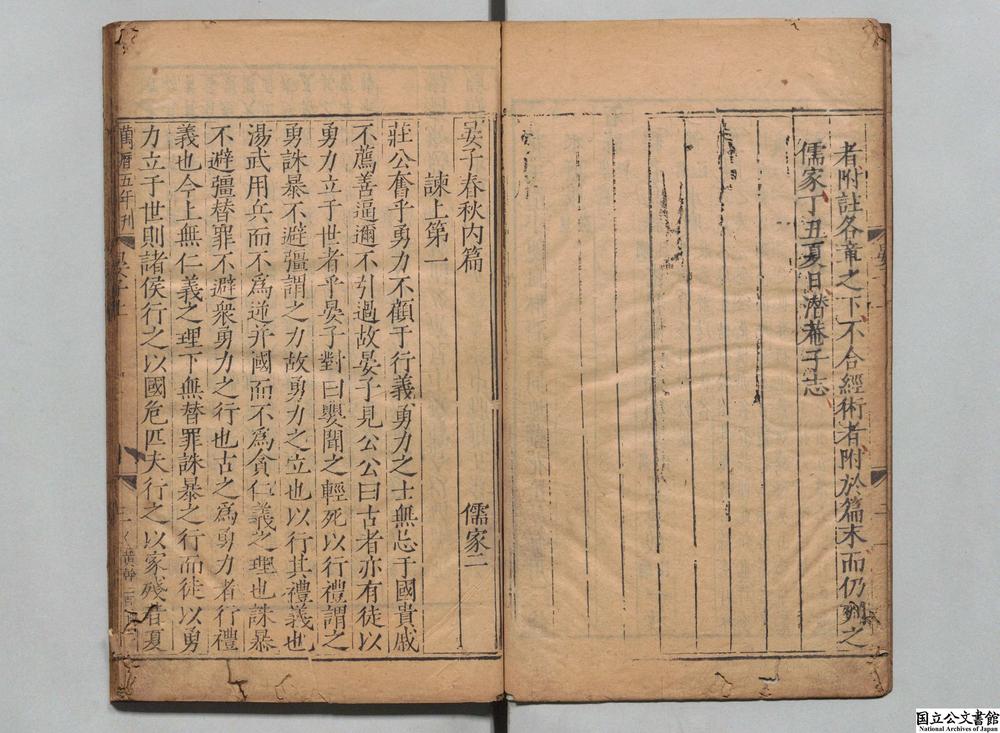 者附註各章之下不合經術者附於篇末而仍列之
儒家丁丑夏日潜菴子志
晏子春秋内篇
諫上第一
儒家二
莊公奮乎勇力不顧于行義勇力之士無忌于國貴戚
不薦善逼邇不引過故晏子見公公曰古者亦有徒以
勇力立于世者乎晏子對曰嬰聞之輕死以行禮謂之
勇誅暴不避彊謂之力故勇力之立也以行其禮義也
湯武用兵而不爲逆并國而不爲貪仁義之理也誅暴
不避彊替罪不避衆勇力之行也古之爲勇力者行禮
義也今上無仁義之理下無替罪誅暴之行而徒以勇
力立于世則諸侯行之以國危匹夫行之以家殘昔夏
萬曆五年刊
国立公文書館
National Archives of Japan